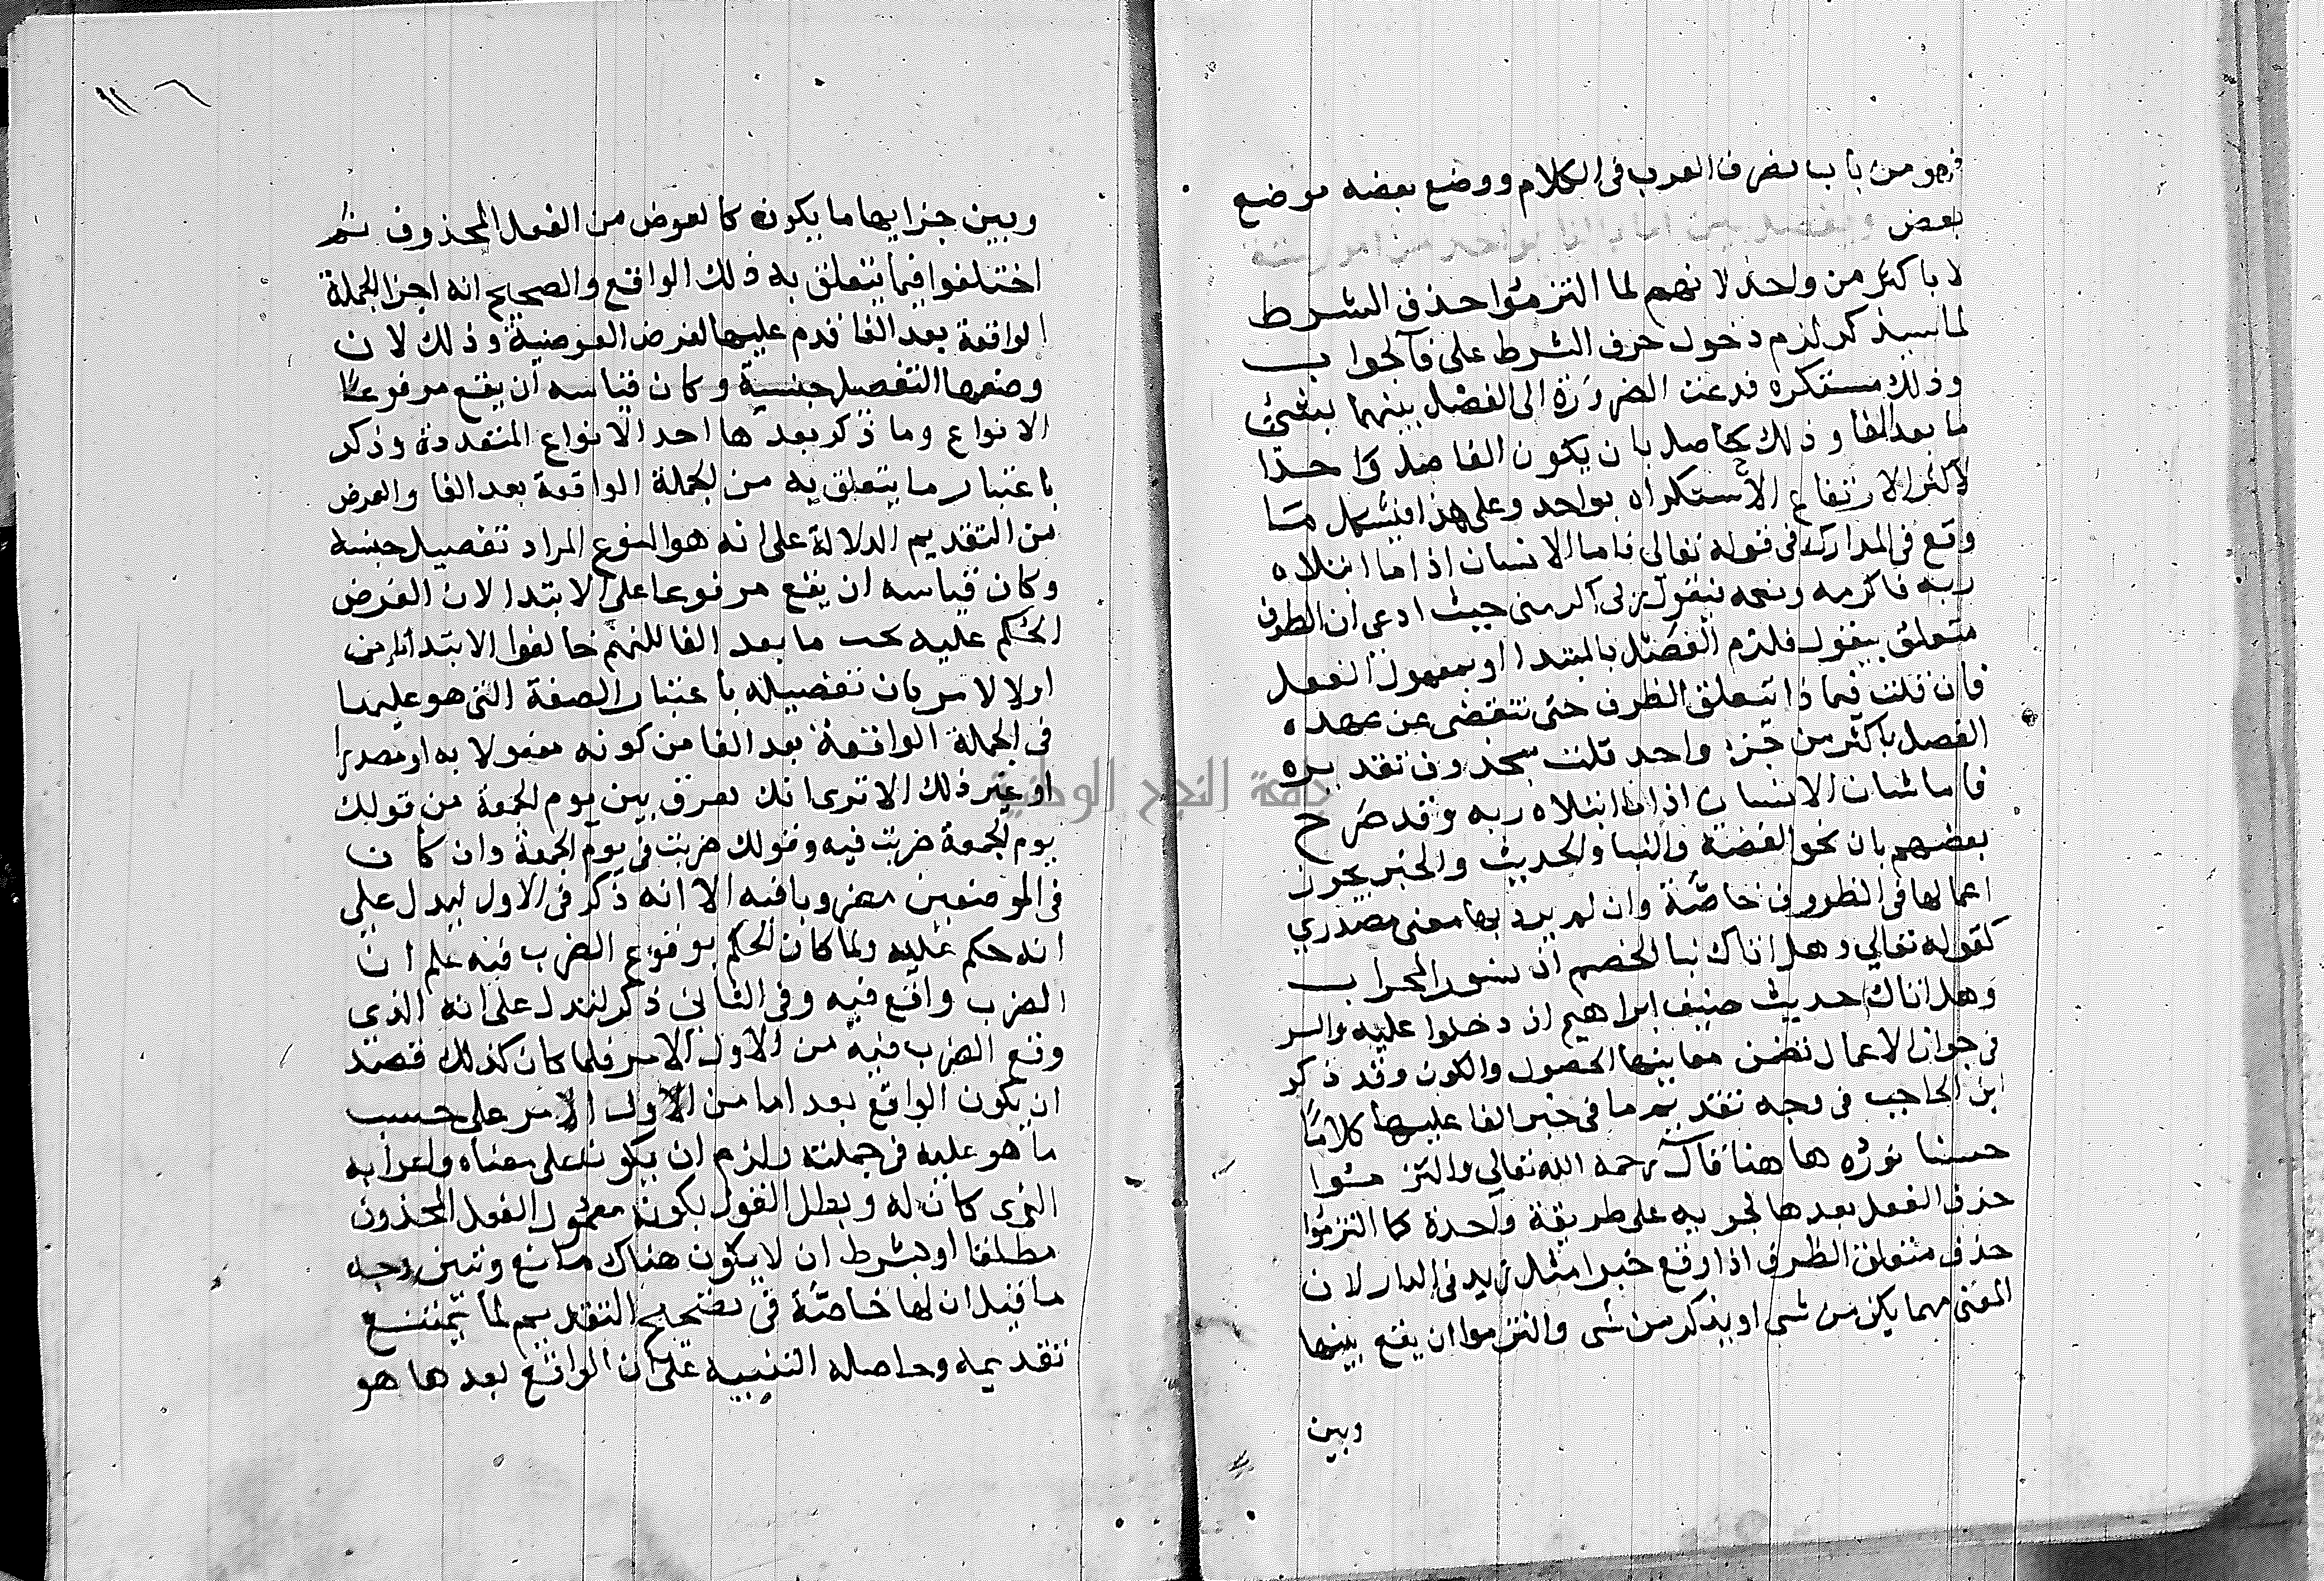 فهو من باب تصرف العرب في الكلام ووضع بعضه موضع
بعض ويفصل بين اما والفا بواحد من امور ستة
لا باكثر من واحد لانهم لما التزموا حذف الشرط
لما سيذكر لزم دخول حرف الشرط على فآ الجواب
وذلك مستكره فدعت الضرورة الى الفصل بينهما بشئ
ما بعد الفا وذلك حاصل بان يكون الفاصل واحدا
لا اكثر لارتفاع الاستكراه بواحد وعلى هذا فيشكل ما
وقع في المدارك في قوله تعالى فاما الانسان اذا ما ابتلاه
ربه فاكرمه ونعمه فيقول ربى اكرمنى حيث ادعى ان الظرف
متعلق بيقول فلزم الفصل بالمبتدا او بمعمول الفعل
فان قلت فبما ذا تتعلق الظرف حتى تتقضى عن عهده
الفصل باكثر من جزء واحد قلت بمحذوف تقديره
فاما شان الانسان اذا ما ابتلاه ربه وقد صرح
بعضهم بان نحو القصة والنبا والحديث والخبر يجوز
اعمالها في الظروف خاصّة وان لم يرد بها معنى مصدري
كقوله تعالى وهل اتاك نبا الخصم اذ تسوروا المحراب
وهل اتاك حديث ضيف ابراهيم اذ دخلوا عليه والسر
في جواز الاعمال تضمن معانيها الحصول والكون وقد ذكر
ابن الحاجب في وجه تقديم ما في خبر الفا عليها كلامًا
حسنا نورده هاهنا قال رحمه الله تعالى والتزموا
حذف الفعل بعدها لجريه على طريقة واحدة كما التزموا
حذف متعلق الظرف اذا وقع خبرا مثل زيد في الدار لان
المعنى مهما يكن من شى او يذكر من شى والتزموا ان يقع بينها
وبين
وبين جزايها ما يكون كالعوض من الفعل المحذوف ثم
اختلفوا فيما يتعلق به ذلك الواقع والصحيح انه اجزا الجملة
الواقعة بعد الفا قدم عليها لغرض العوضية وذلك لان
وضعها التفصيل جنسية وكان قياسه أن يقع مرفوعًا
الانواع وما ذكر بعدها احد الانواع المتعددة وذكر
باعتبار ما يتعلق به من الجملة الواقعة بعد الفا والغرض
من التقديم الدلالة على انه هو النوع المراد تفصيل جنسه
وكان قياسه ان يقع مرفوعا على الابتدا لان الغرض
الحكم عليه بحسب ما بعد الفا لكنهم خالفوا الابتدا من
اول الامر بان تفصيله باعتبار الصفة التي هو عليها
في الجملة الواقعة بعد الفا من كونه مفعولا به او مصدرا
او غير ذلك الا ترى انك تفرق بين يوم الجمعة من قولك
يوم الجمعة ضربت فيه وقولك ضربت في يوم الجمعة وان كان
في الموضعين مضروبا فيه الا انه ذكر في الاول ليدل على
انه حكم عليه ولما كان الحكم بوقوع الضرب فيه علم ان
الضرب واقع فيه وفى الثانى ذكر لتدل على انه الذى
وقع الضرب فيه من الاول الامر فلما كان كذلك قصد
ان يكون الواقع بعد اما من الاول الامر على حسب
ما هو عليه في جملته ولزم ان يكون على معناه واعرابه
الذى كان له وبطل القول بكونه معمول الفعل المحذوف
مطلقا او بشرط ان لا يكون هناك مانع وتبين وجه
ما قيل ان لها خاصّة في تصحيح التقديم لما يمتنع
تقديمه وحاصله التنبيه على ان الواقع بعدها هو
جامعة النجاح الوطنية